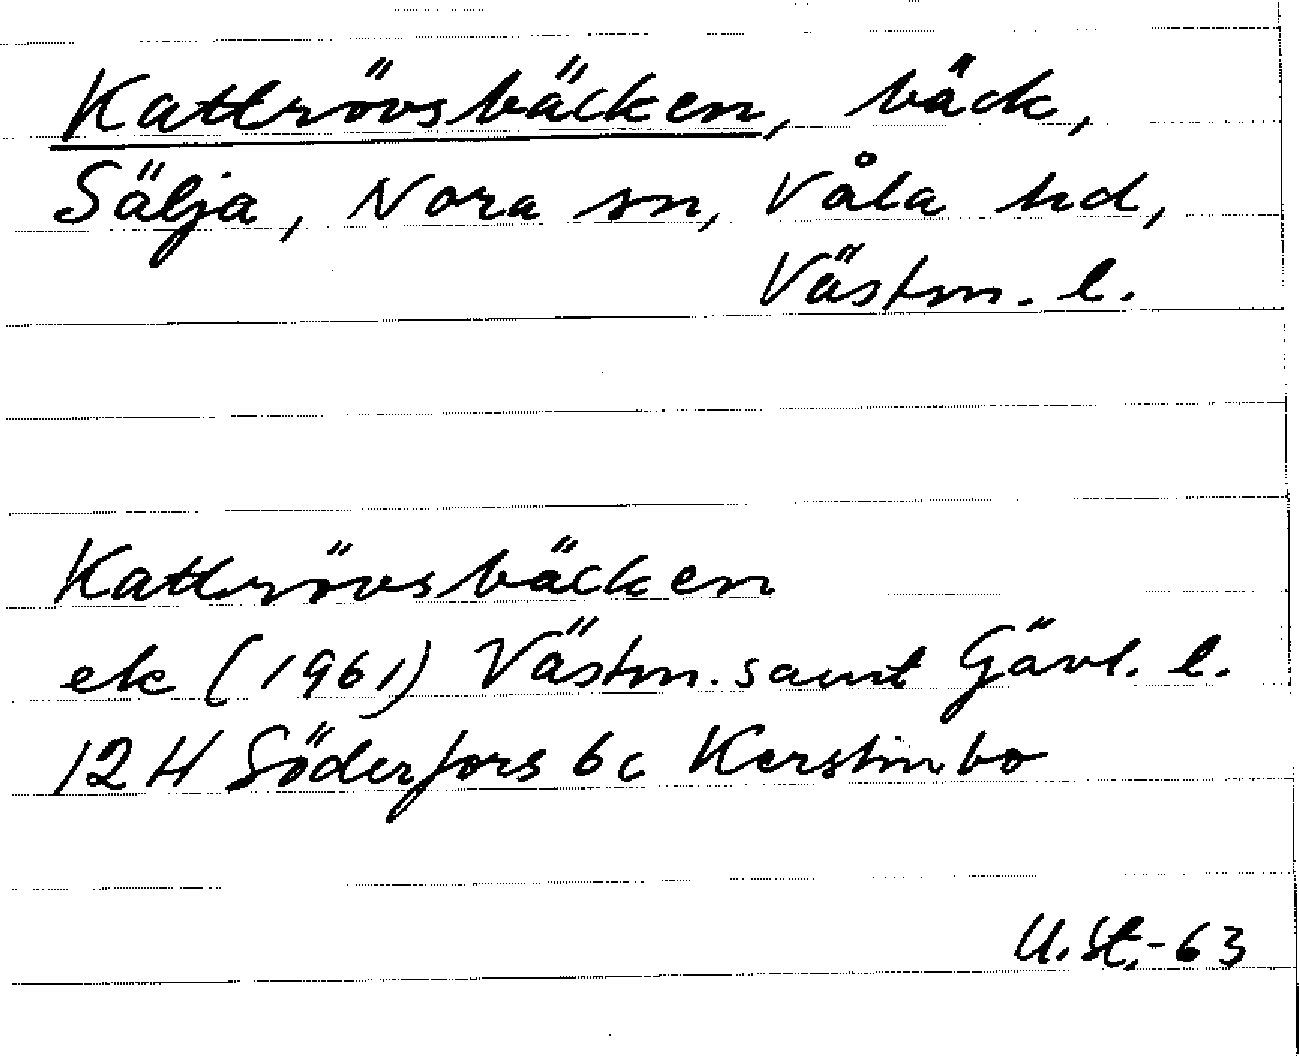 Kattrövsbäcken, bäck,
Sälja, Nora sn, Våla hd,
Västm. l.
Kattrövsbäcken
ek (1961) Västm. samt Gävl. l.
12 H Söderfors 6c Kerstinbo
U. St. -63